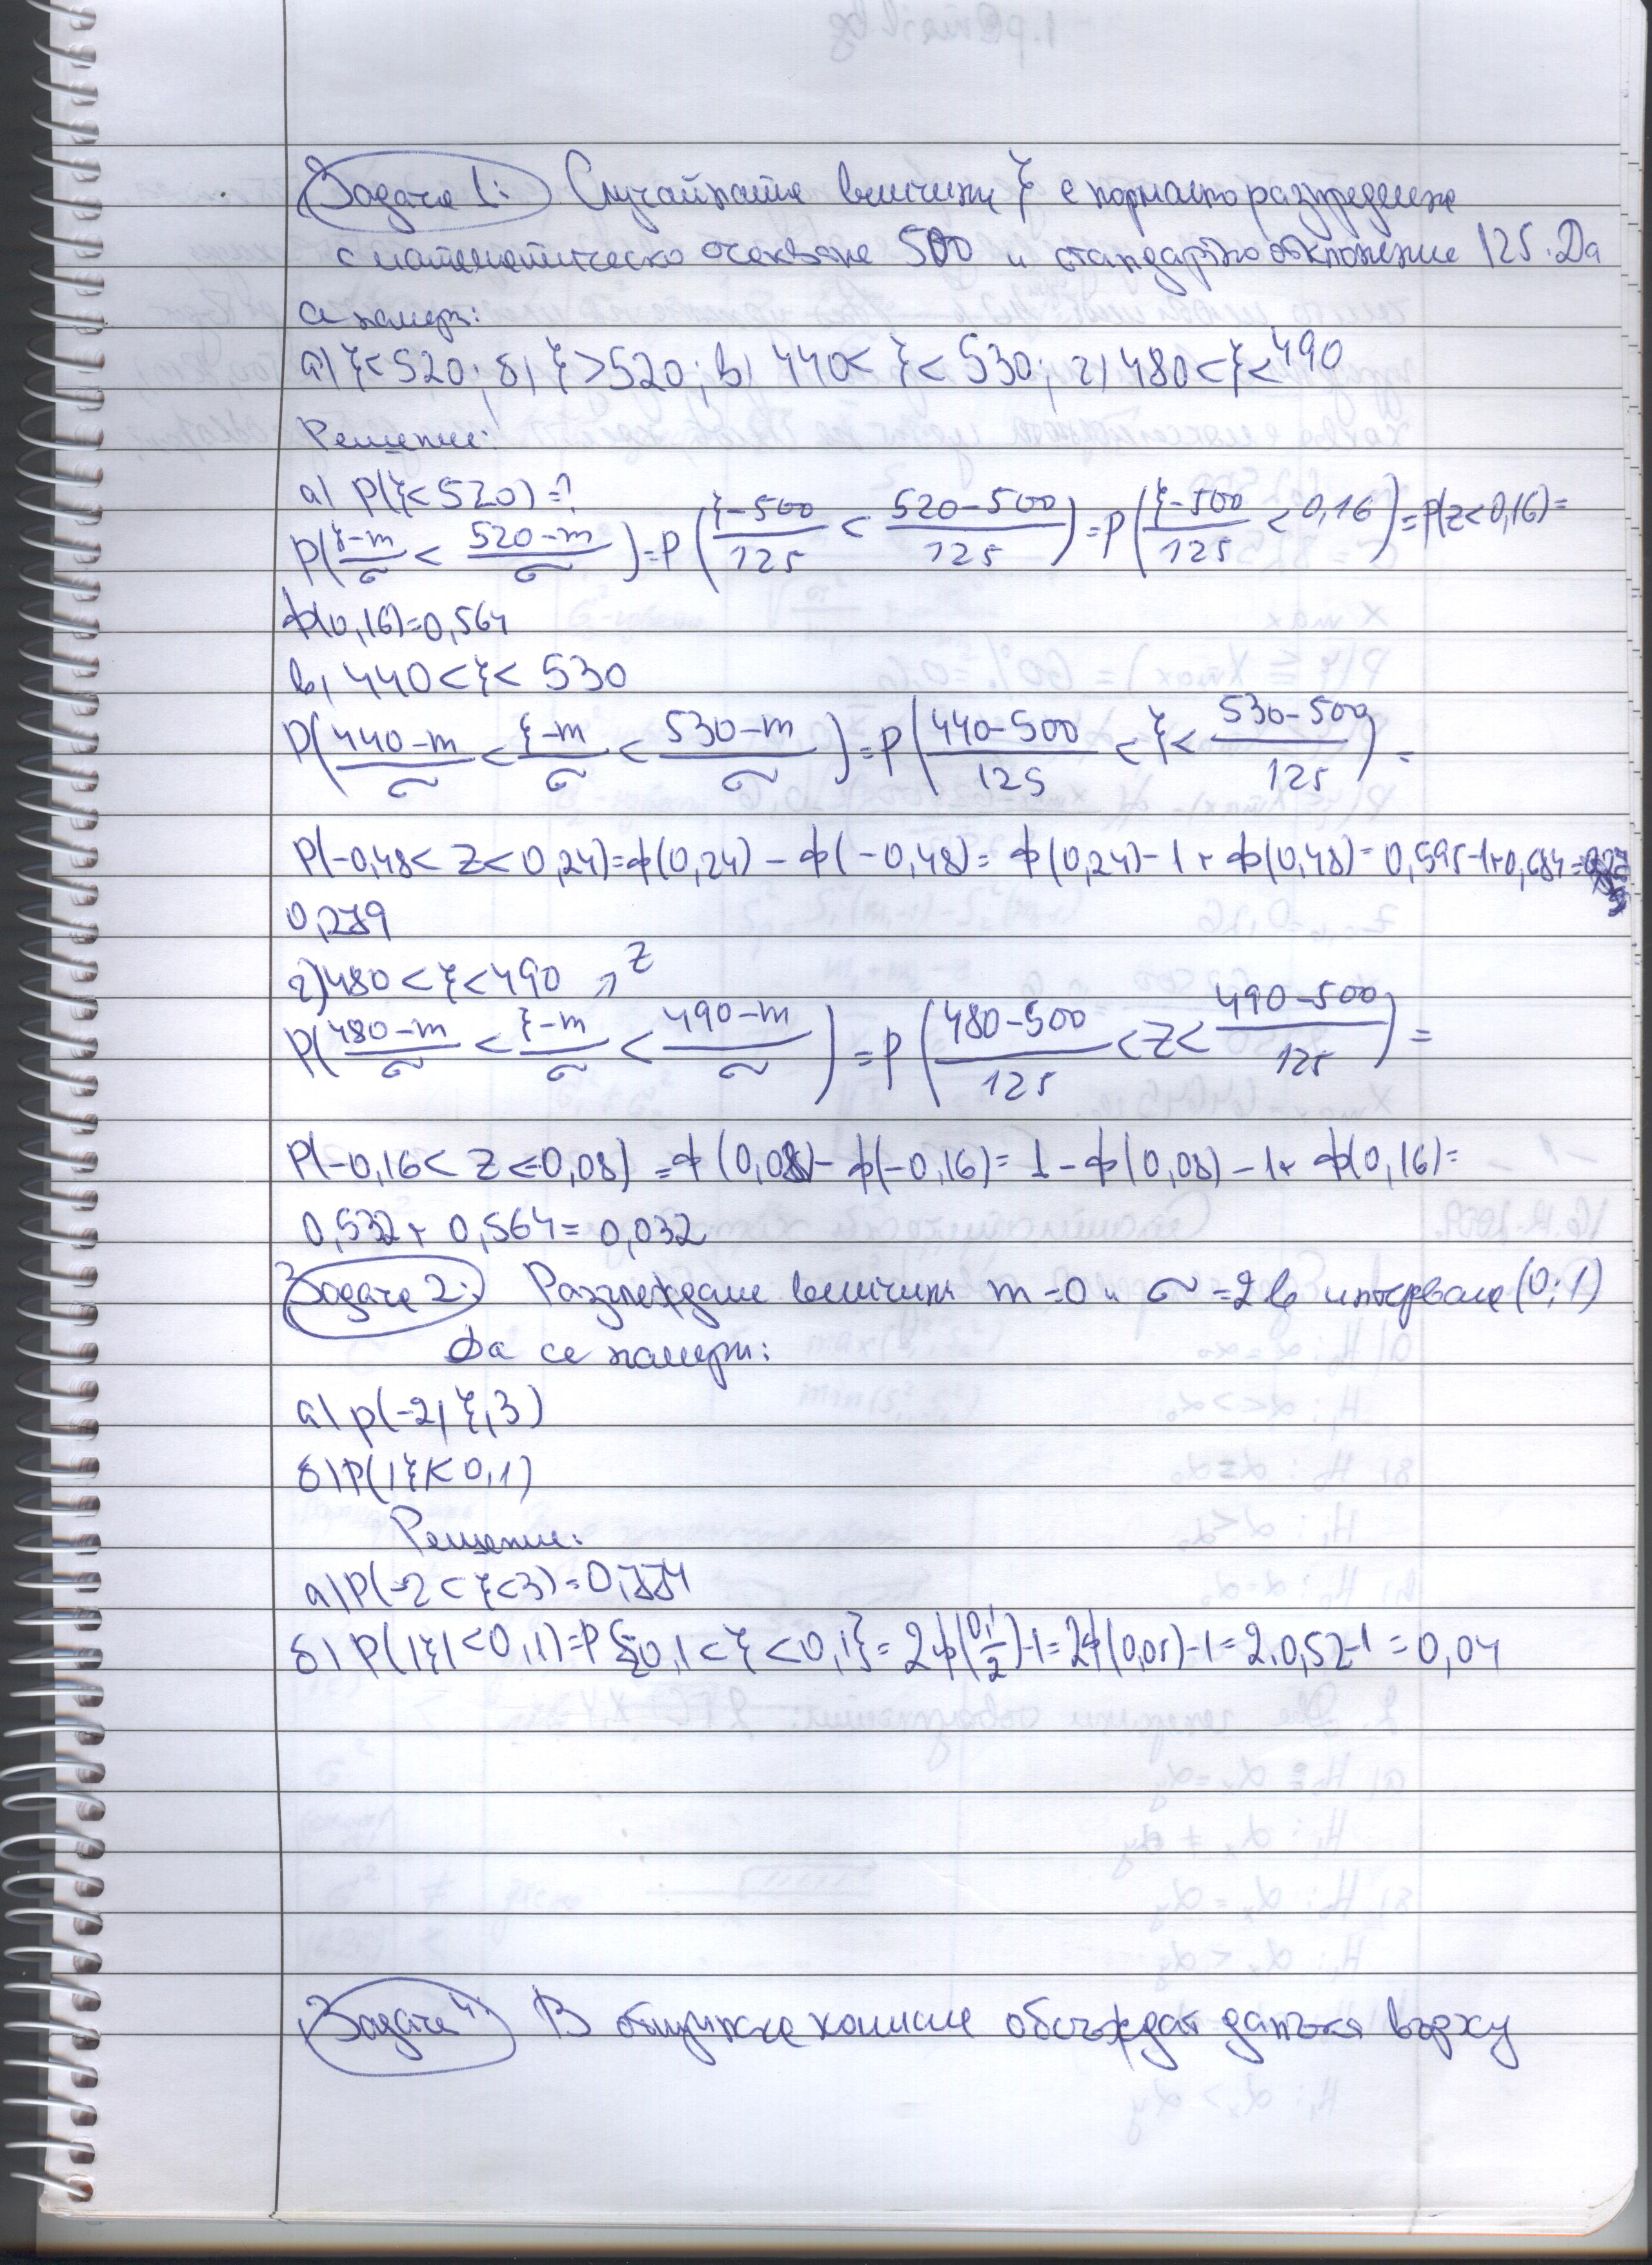 Задача 1: Случайната величина ξ е нормално разпределена
с математическо очакване 500 и стандартно отклонение 125. Да
се намери:
а) ξ<520; б) ξ>520; в) 440< ξ< 530; г) 480<ξ<490
Решение:
а) P(ξ<520)=?
P(ξ-m/σ < 520-m/σ)=P(ξ-500/125 < 520-500/125)=P(ξ-500/125 < 0,16)=P(z<0,16)=
ф(0,16)=0,564
в) 440<ξ< 530
P(440-m/σ < ξ-m/σ < 530-m/σ)=P(440-500/125 < ξ < 530-500/125) =
P(-0,48< z < 0,24)=ф(0,24) - ф(-0,48)= ф(0,24)-1+ ф(0,48)= 0,595-1+0,684=
0,279
г) 480 <ξ<490 z
P(480-m/σ < ξ-m/σ < 490-m/σ) = P(480-500/125 <z< 490-500/125) =
P(-0,16< z <-0,08) =ф(0,08)- ф(-0,16)= 1 - ф(0,08) - 1+ ф(0,16)=
0,532+ 0,564= 0,032
Задача 2: Разглеждаме величина m=0 и σ=2 в интервала (0;1)
Да се намери:
а) p(-2, ξ, 3)
б) P(|ξ|<0,1)
Решение:
а) P(-2 <ξ<3)=0,774
б) P(|ξ| <0,1)=P{-0,1<ξ <0,1}= 2ф(0,1/2)-1=2ф(0,05)-1=2.0,52-1 = 0,04
Задача 4: В общинска комисия обсъждат данъка върху